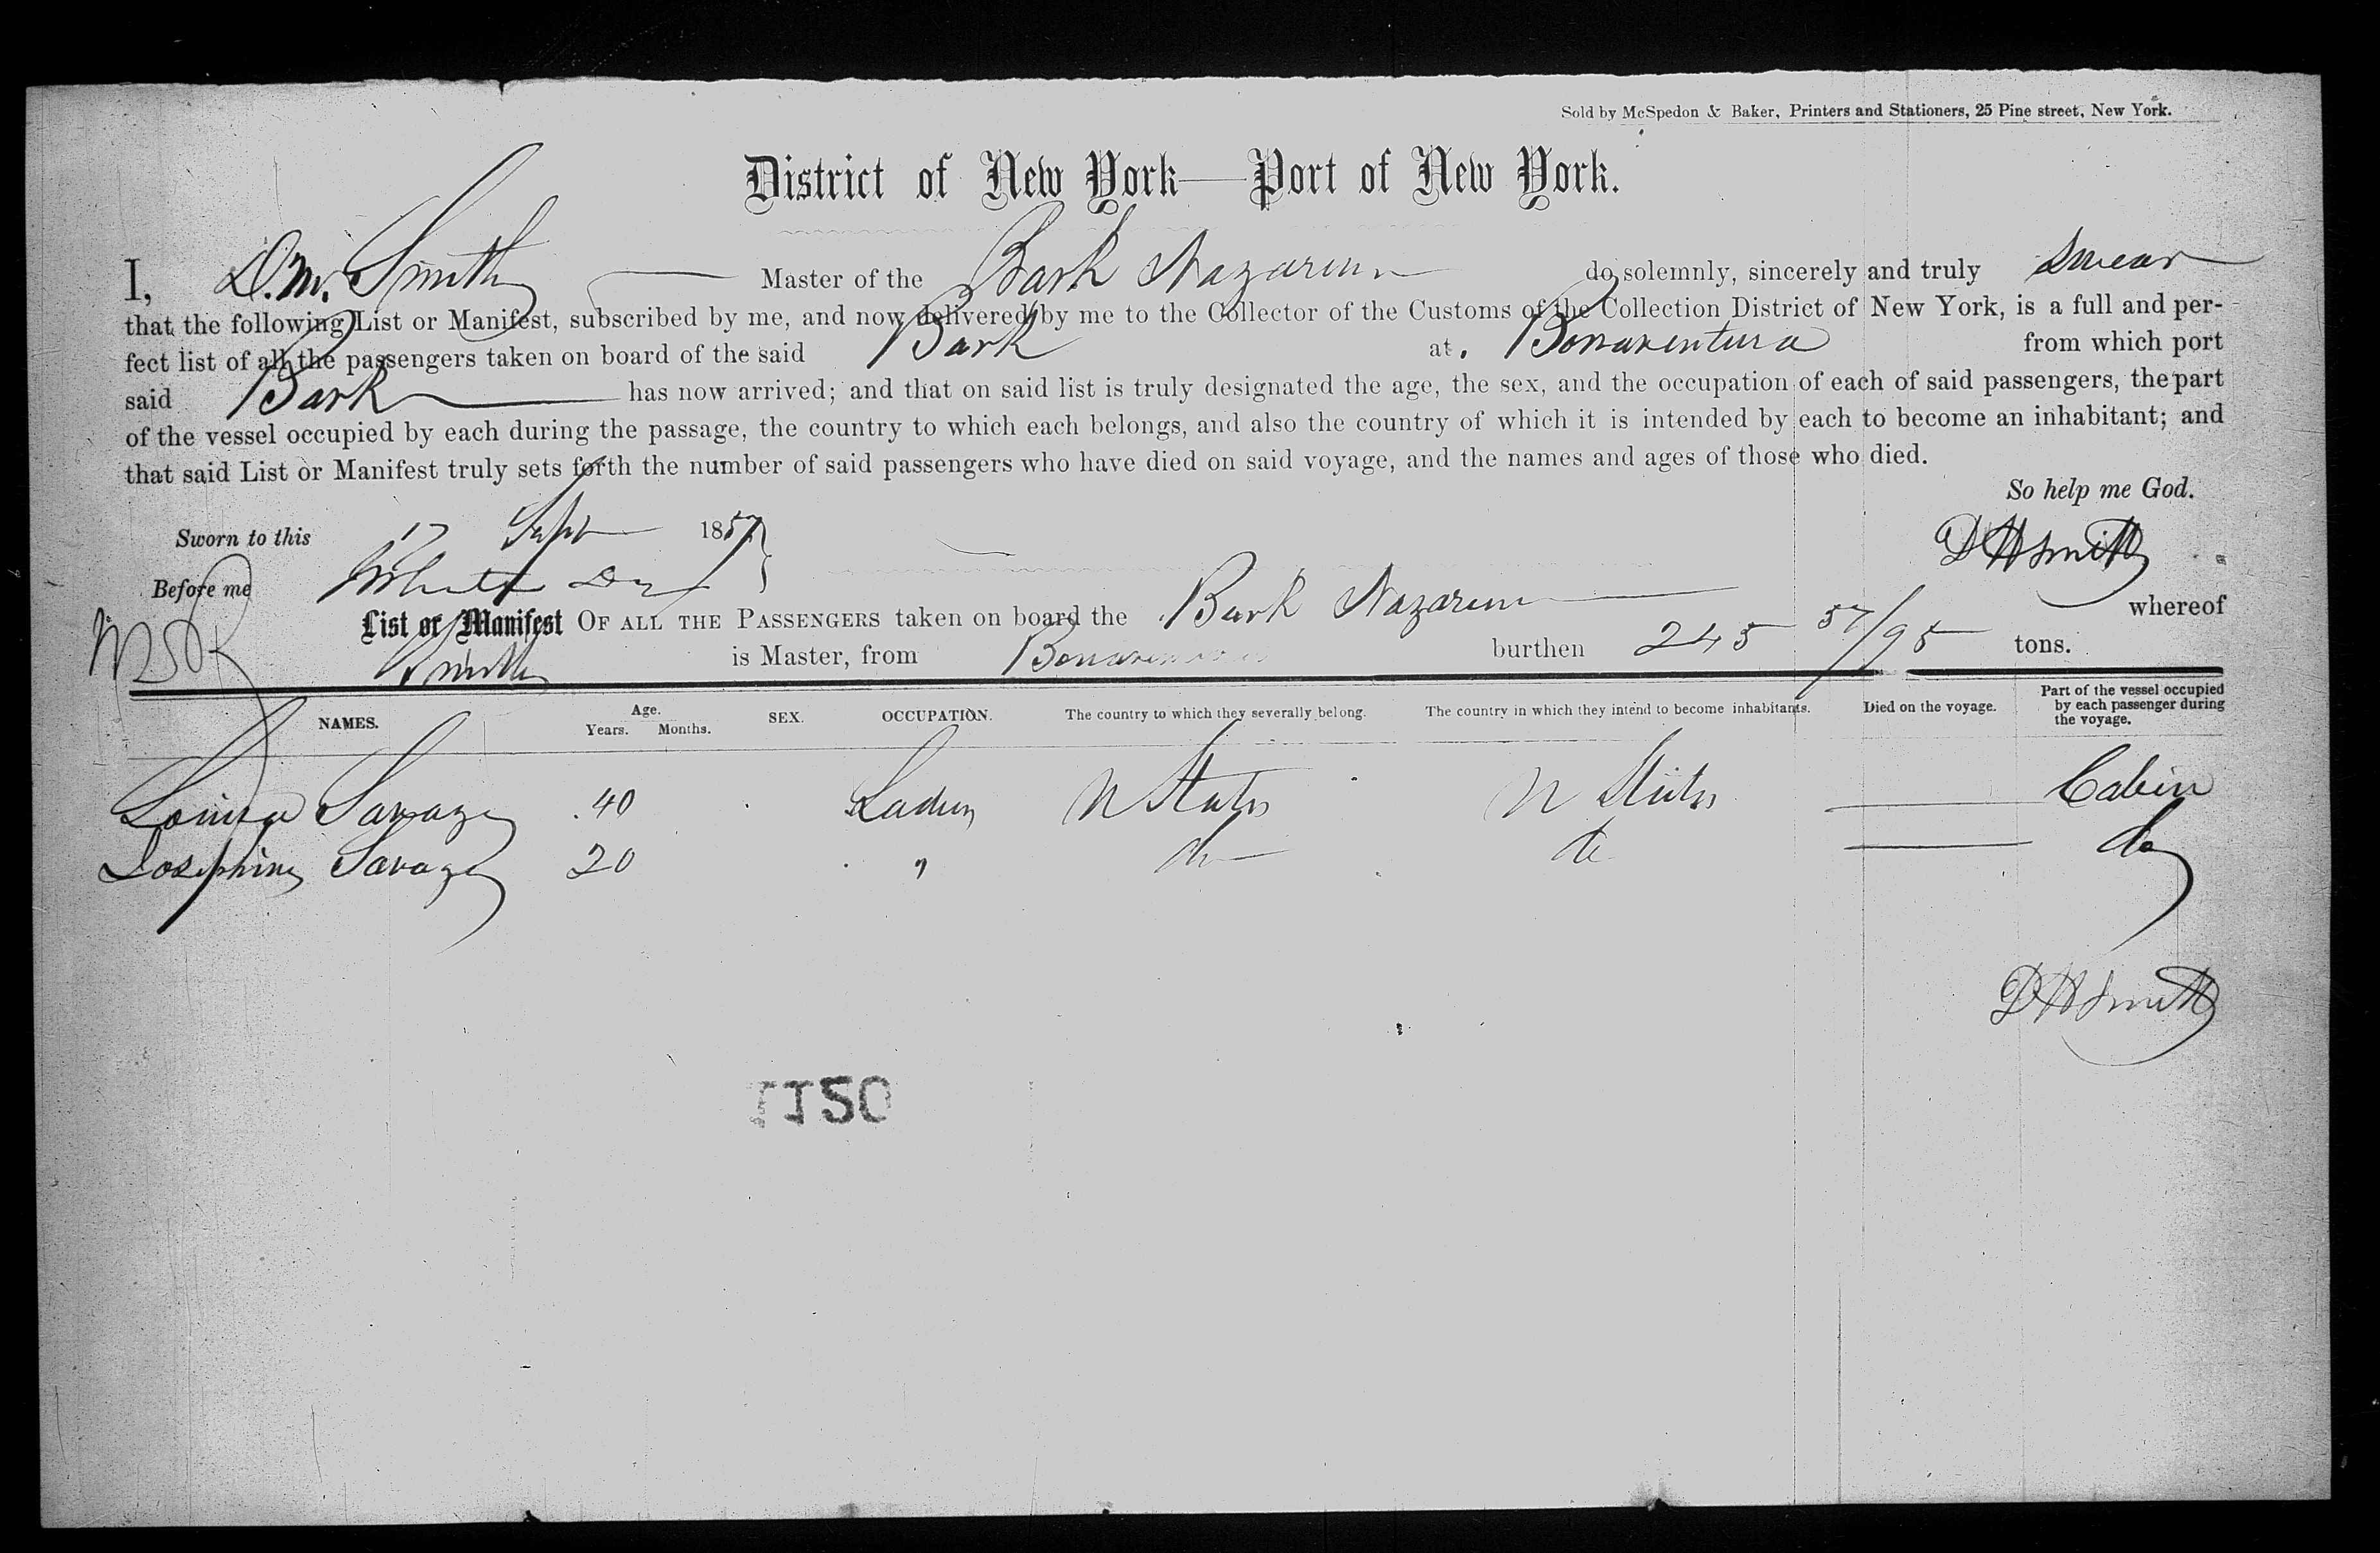 Sold by McSpedon & Baker, Printers and Stationers, 25 Pine street, New York.
District of New York—Port of New York.
I, D.M. Smith Master of the Bark Nazarene do solemnly, sincerely and truly swear
that the following List or Manifest, subscribed by me, and now delivered by me to the Collector of the Customs of the Collection District of New York, is a full and per-
fect list of all the passengers taken on board of the said Bark at Bonaventura from which port
said Bark has now arrived; and that on said list is truly designated the age, the sex, and the occupation of each of said passengers, the part
of the vessel occupied by each during the passage, the country to which each belongs, and also the country of which it is intended by each to become an inhabitant; and
that said List or Manifest truly sets forth the number of said passengers who have died on said voyage, and the names and ages of those who died.
So help me God.
Sworn to this 17 Sept 1857
D H Smith
Before me
List or Manifest OF ALL THE PASSENGERS taken on board the Bark Nazarene whereof
Smith is Master, from Bonaventura burthen 245 57/95 tons.
NAMES. Age. Years. Months. SEX. OCCUPATION. The country to which they severally belong. The country in which they intend to become inhabitants. Died on the voyage. Part of the vessel occupied by each passenger during the voyage.
Louisa Savage 40 Ladies U States U States Cabin
Josephine Savage 20 " do do do
D H Smith
1150